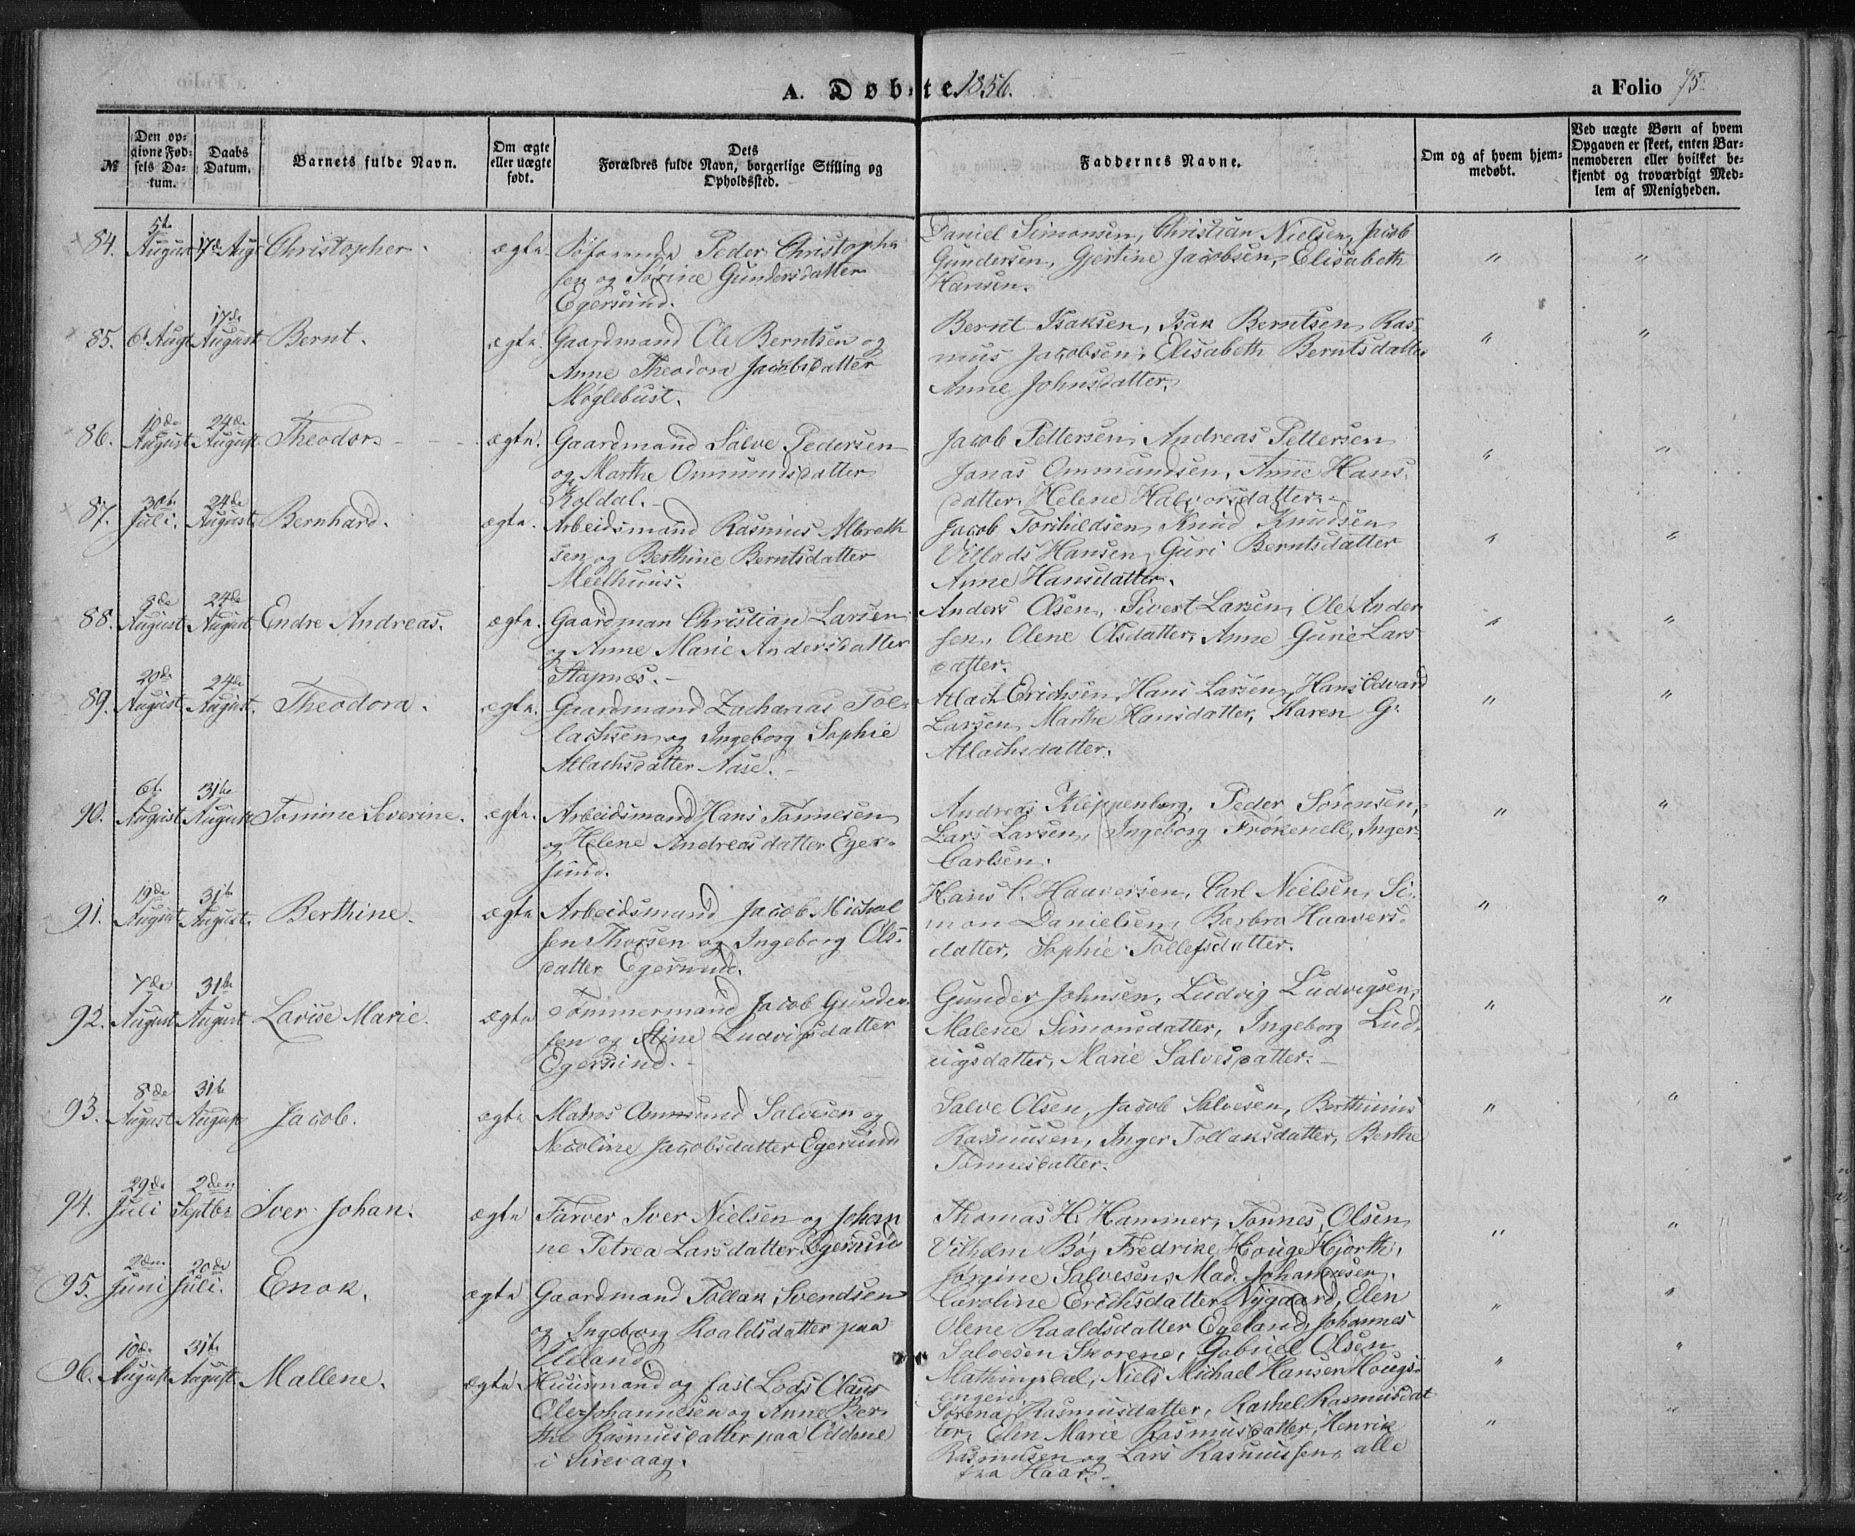 A. Døbte 1856.
a Folio 75.
№
Den opgivne Fødsels Datum.
Daabs Datum.
Barnets fulde Navn.
Om ægte eller uægte født.
Dets Forældres fulde Navn, borgerlige Stilling og Opholdssted.
Faddernes Navne.
Om og af hvem hjemmedøbt.
Ved uægte Børn af hvem Opgaven er skeet, enten Barnemoderen eller hvilket bekjendt og troværdigt Medlem af Menigheden.
84. 5te August 17de Augt Christopher. ægte Søfarende Peder Christopher
sen og Sørine Gundersdatter
Egersund.
Daniel Simonsen, Christian Nielsen, Jacob
Gundersen, Gjertine Jacobsen, Elisabeth
Hansen.
" "
85. 6t Augt 17de August Bernt. ægte. Gaardmand Ole Berntsen og
Anne Theodora Jacobsdatter
Møglebust.
Bernt Isaksen, Isak Berntsen, Ras-
mus Jacobsen, Elisabeth Berntsdatter
Anne Johnsdatter.
" "
86. 10de August 24de August Theodor ægte. Gaardmand Salve Pedersen
og Marthe Ommundsdatter
Koldal.
Jacob Pettersen, Andreas Pettersen
Jonas Ommundsen, Anne Hans-
datter, Helene Halvorsdatter.
" "
87. 30te Juli. 24de August. Bernhard. ægte. Arbeidsmand Rasmus Albreth
sen og Berthine Berntsdatter
Meelhuus.
Jacob Torkildsen, Knud Knudsen
Villads Hansen, Guri Berntsdatter
Anne Hansdatter.
" "
88. 8de August 24de August Endre Andreas. ægte. Gaardman Christian Larsen
og Anne Marie Andersdatter
Stapnæs.
Anders Olsen, Sivert Larsen, Ole Ander
sen, Olene Olsdatter, Anne Gurie Lars
datter.
" "
89. 20de August 24de August. Theodora. ægte. Gaardmand Zacharias Tol-
lachsen og Ingeborg Sophie
Atlachsdatter Aase.
Atlach Erichsen, Hans Larsen, Hans Edward
Larsen, Marthe Hansdatter, Karen G.
Atlachsdatter.
" "
90. 6t. August 31te August Tomine Severine. ægte. Arbeidsmand Hans Tønnesen
og Helene Andreasdatter Eger-
sund.
Andreas Kleppenberg, Peder Sørensen,
Lars Larsen, Ingeborg Frøkenell, Inger
Carlsen.
" "
91. 19de August 31te August. Berthine. ægte Arbeidsmand Jacob Michal
sen Thorsen og Ingeborg Ols-
datter Egersund.
Hans C. Haaversen, Carl Nielsen, Si-
mon Danielsen, Barbra Haavers-
datter, Sophie Tollefsdatter.
" "
92. 7de August 31te August Lovise Marie. ægte Tømmermand Jacob Gunder
sen og Stine Ludvigsdatter
Egersund.
Gunder Johnsen, Ludvig Ludvigsen,
Malene Simonsdatter, Ingeborg Lud-
vigsdatter, Marie Salvesdatter.
" "
93. 8de August 31te August Jacob. ægte Matros Ommund Salvesen og
Nicoline Jacobsdatter Egersund
Salve Olsen, Jacob Salvesen, Berthinius
Rasmusen, Inger Tollaksdatter, Berthe
Tønnesdatter.
" "
94. 29de Juli 2den Septbr Iver Johan. ægte Farver Iver Nielsen og Johan
ne Petrea Larsdatter, Egersund
Thomas H. Hammer, Tønnes Olsen
Vilhelm Bø, Fredrike Houge Hjorth,
Jørgine Salvesen, Mad. Johannesen.
" "
95. 2den Juni 20de Juli. Enok. ægte Gaardmand Tollak Svendsen
og Ingeborg Roaldsdatter paa
Eleland.
Caroline Erichsdatter Nygaard, Elen
Olene Raaldsdatter Egeland, Johannes
Salvesen Skorene, Gabriel Olsen
Mathingsdal, Niels Michael Hansen Hougs-
engen.
" "
96. 10de August 31te August. Mallene. ægte. Huusmand og fast Lods Claus
Olez Johannesen og Anne Ber-
the Rasmusdatter paa Oddene
i Sirevaag.
Sørena Rasmusdatter, Rachel Rasmusdat
ter, Elen Marie Rasmusdatter, Henrik
Rasmusen og Lars Rasmussen, alle
fra Haar.
" "